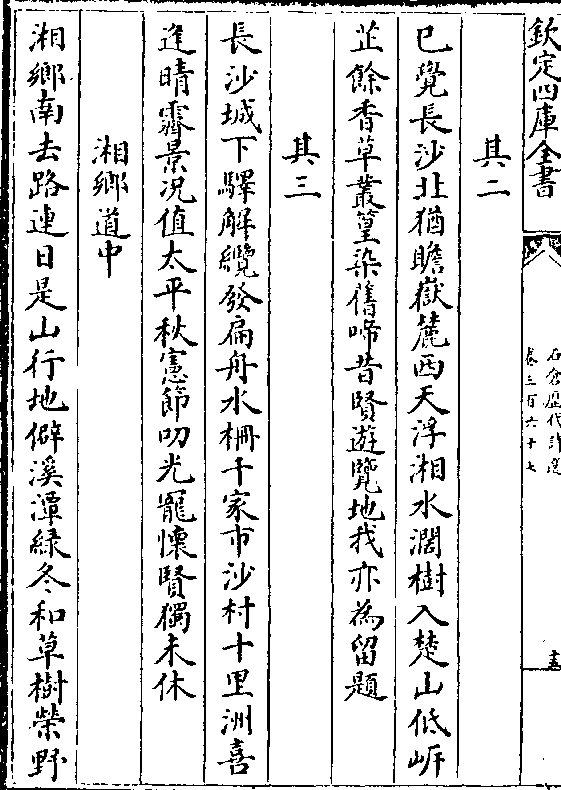 欽定四庫全書
石倉歷代詩選
卷三百六十七
其二
已覺長沙北猶瞻嶽麓西天浮湘水濶樹入楚山低㟁
芷餘香草叢篁染舊啼昔賢遊覽地我亦為留題
其三
長沙城下驛解纜發扁舟水柵千家市沙村十里洲喜
逢晴霽景况值太平秋憲節叨光寵懷賢獨未休
湘鄉道中
湘鄉南去路連日是山行地僻溪潭緑冬和草樹榮野